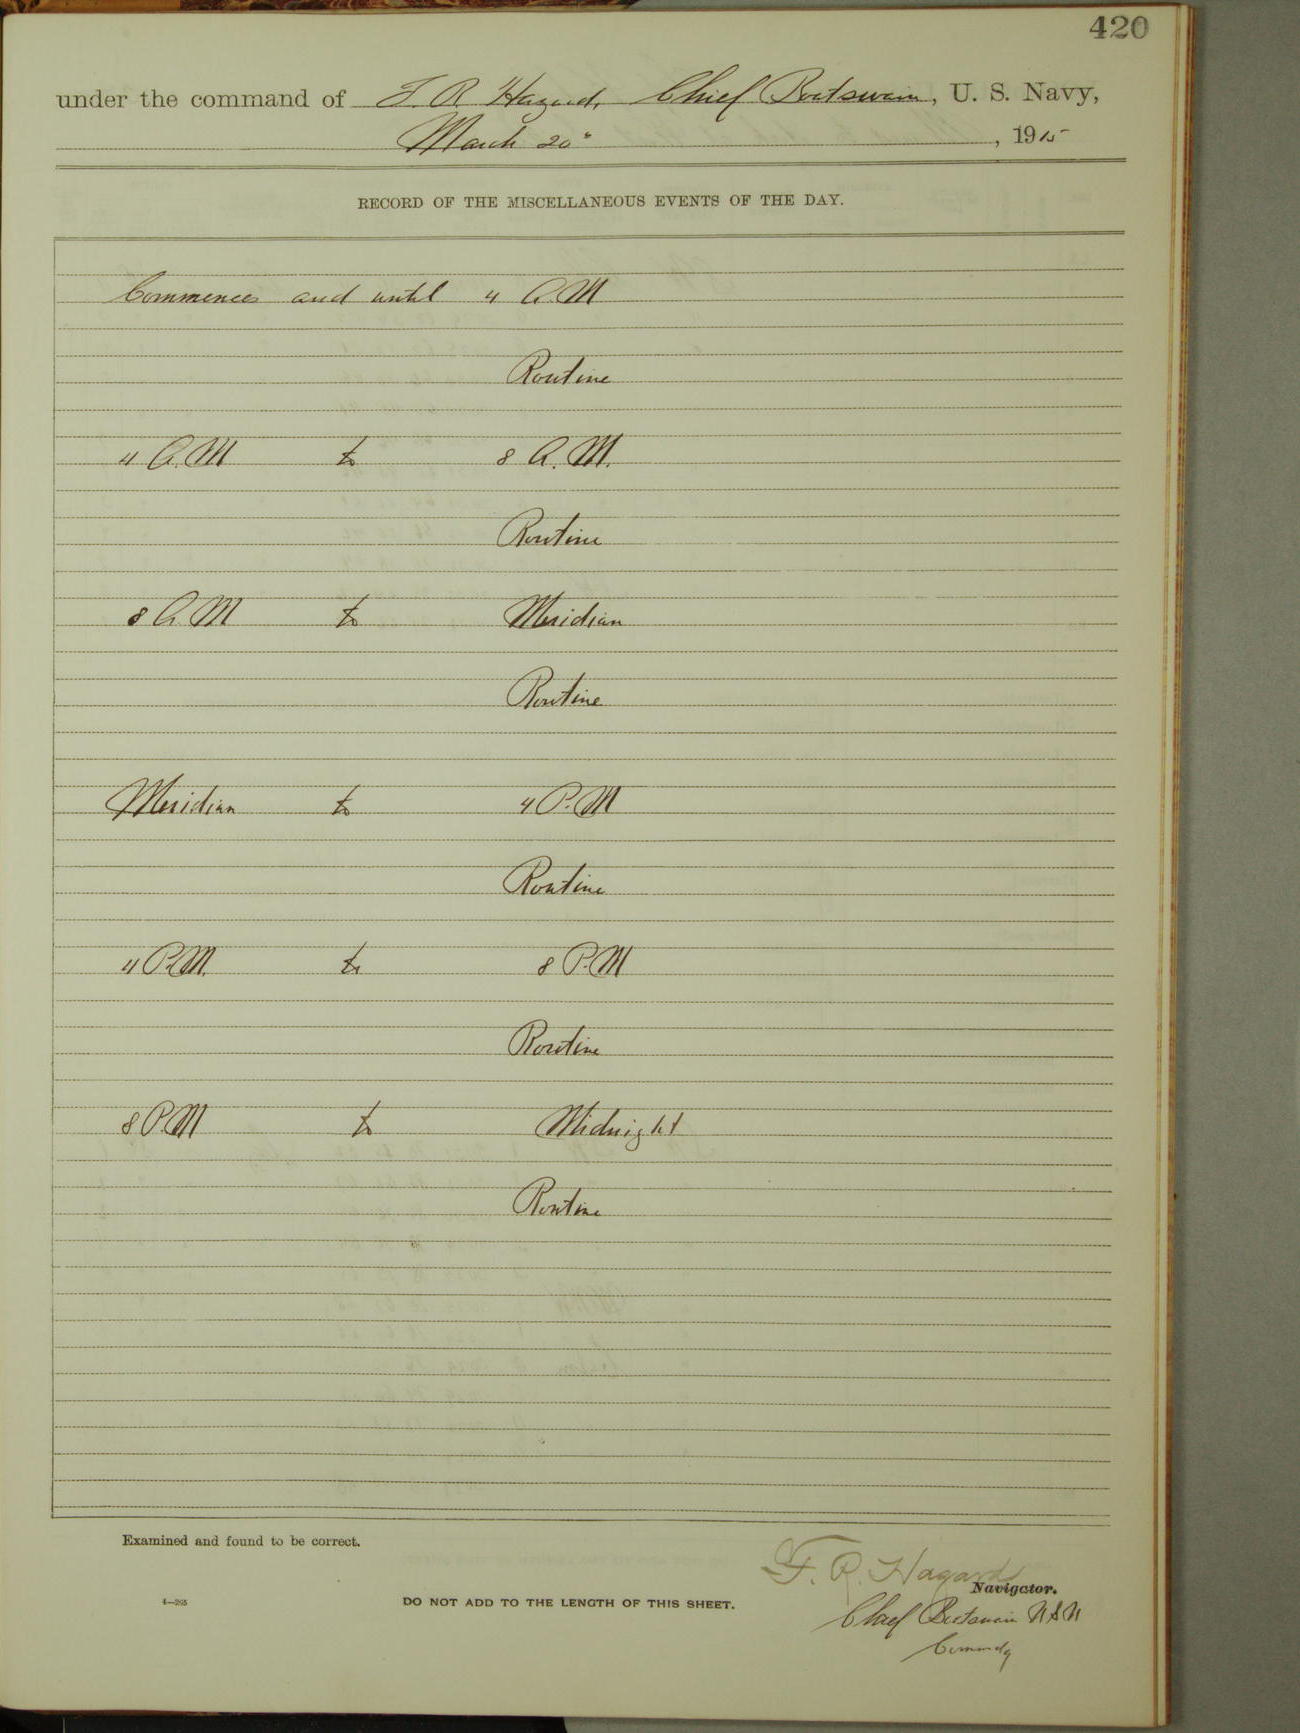 420
under the command of F. R. Hazard, Chief Boatswain, U. S. Navy,
March 20", 1915
RECORD OF THE MISCELLANEOUS EVENTS OF THE DAY.
Commences and until 4 A.M
Routine
4 A.M to 8 A.M.
Routine
8 A.M to Meridian
Routine
Meridian to 4 P.M
Routine
4 P.M. to 8 P.M
Routine
8 P.M to Midnight
Routine
Examined and found to be correct.
F. R. Hazard
Navigator.
4—295
DO NOT ADD TO THE LENGTH OF THIS SHEET.
Chief Boatswain U S N
Commndg